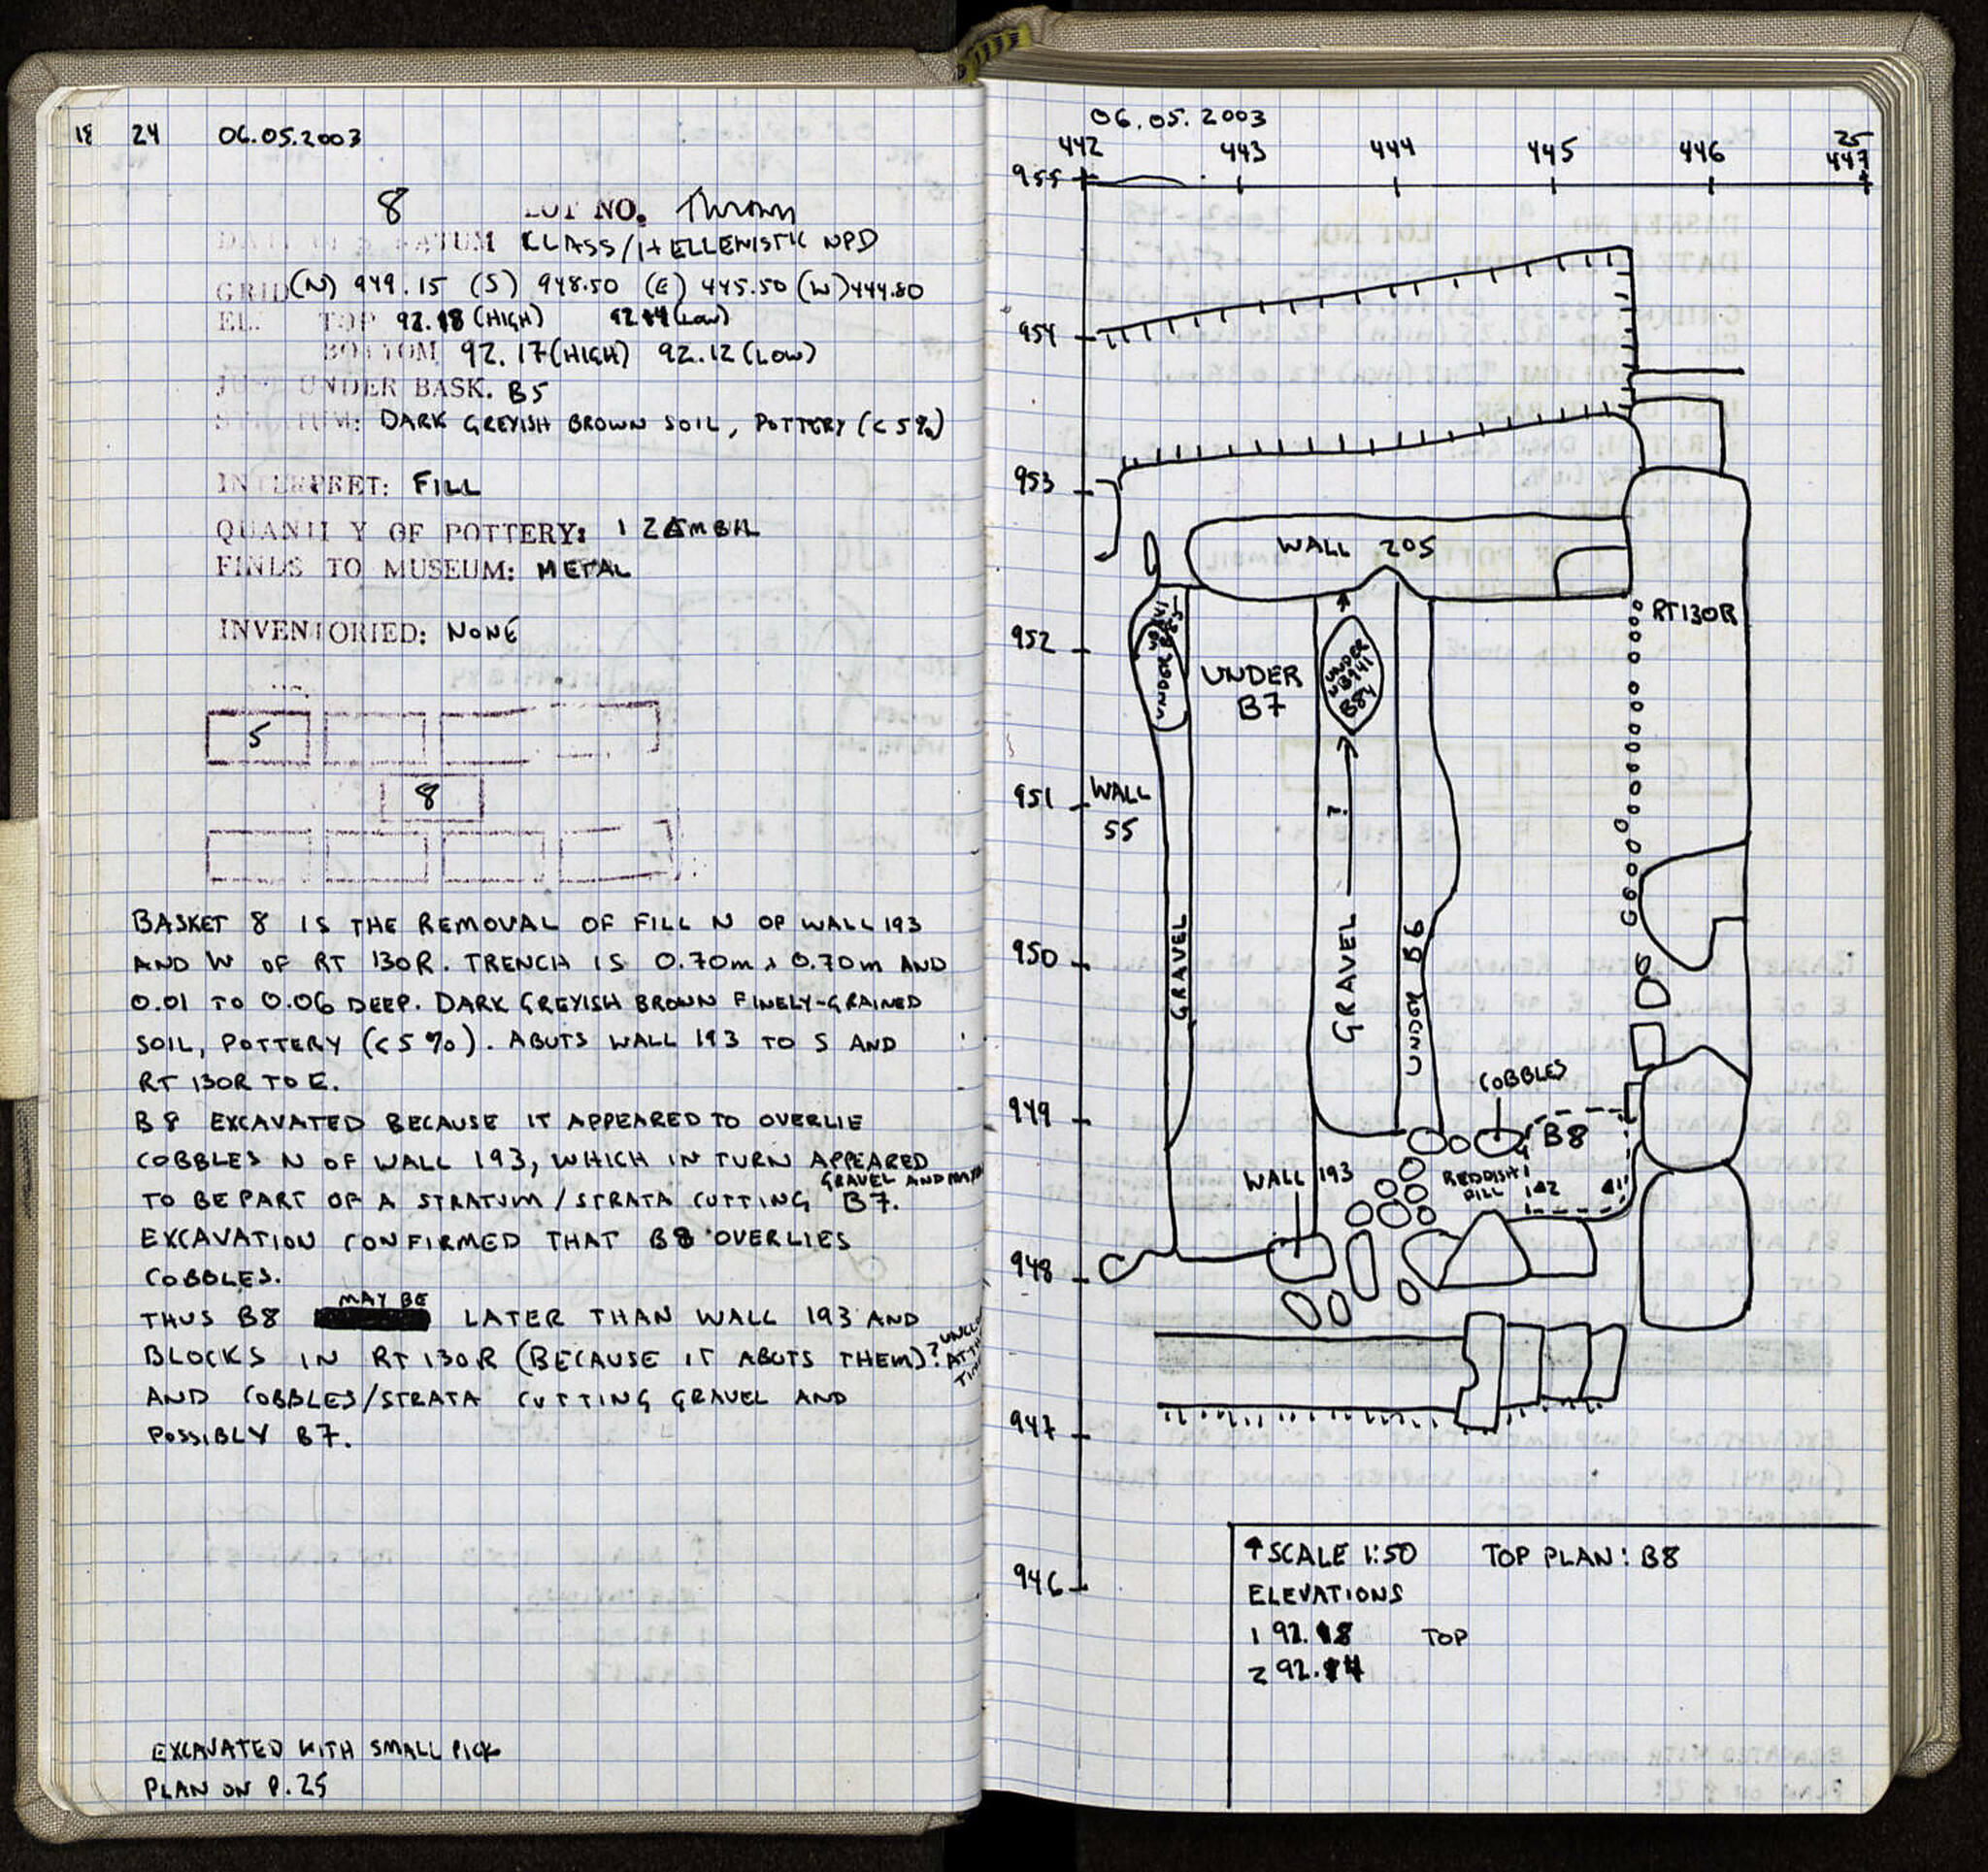 24 06.05.2003
8 LOT NO. Thrown
DATE OF STRATUM CLASS/HELLENISTIC NPD
GRID (N) 949.15 (S) 948.50 (E) 445.50 (W) 444.80
EL. TOP 92.18 (HIGH) 92.14 (LOW)
BOTTOM 92.17 (HIGH) 92.12 (LOW)
JUST UNDER BASK. B5
STRATUM: DARK GREYISH BROWN SOIL, POTTERY (<5%)
INTERPRET: FILL
QUANTITY OF POTTERY: 1 ZEMBIL
FINDS TO MUSEUM: METAL
INVENTORIED: NONE
5
8
BASKET 8 IS THE REMOVAL OF FILL N OF WALL 193
AND W OF RT 130R. TRENCH IS 0.70m x 0.70m AND
0.01 TO 0.06 DEEP. DARK GREYISH BROWN FINELY-GRAINED
SOIL, POTTERY (<5%). ABUTS WALL 193 TO S AND
RT 130R TO E.
B8 EXCAVATED BECAUSE IT APPEARED TO OVERLIE
COBBLES N OF WALL 193, WHICH IN TURN APPEARED
GRAVEL AND
TO BE PART OF A STRATUM/STRATA CUTTING B7.
EXCAVATION CONFIRMED THAT B8 OVERLIES
COBBLES.
MAY BE
THUS B8 LATER THAN WALL 193 AND
BLOCKS IN RT 130R (BECAUSE IT ABUTS THEM)?
AND COBBLES/STRATA CUTTING GRAVEL AND
POSSIBLY B7.
EXCAVATED WITH SMALL PICK
PLAN ON P.25
06.05.2003
25
442 443 444 445 446 447
955
954
953
WALL 205
RT130R
952
UNDER NB941 B85
UNDER B7
UNDER NB941 B84
951
WALL 55
?
950
GRAVEL
GRAVEL
UNDER B6
COBBLES
949
B8
WALL 193
REDDISH FILL
1 2
1
948
947
946
↑ SCALE 1:50 TOP PLAN: B8
ELEVATIONS
1 92.18 TOP
2 92.14